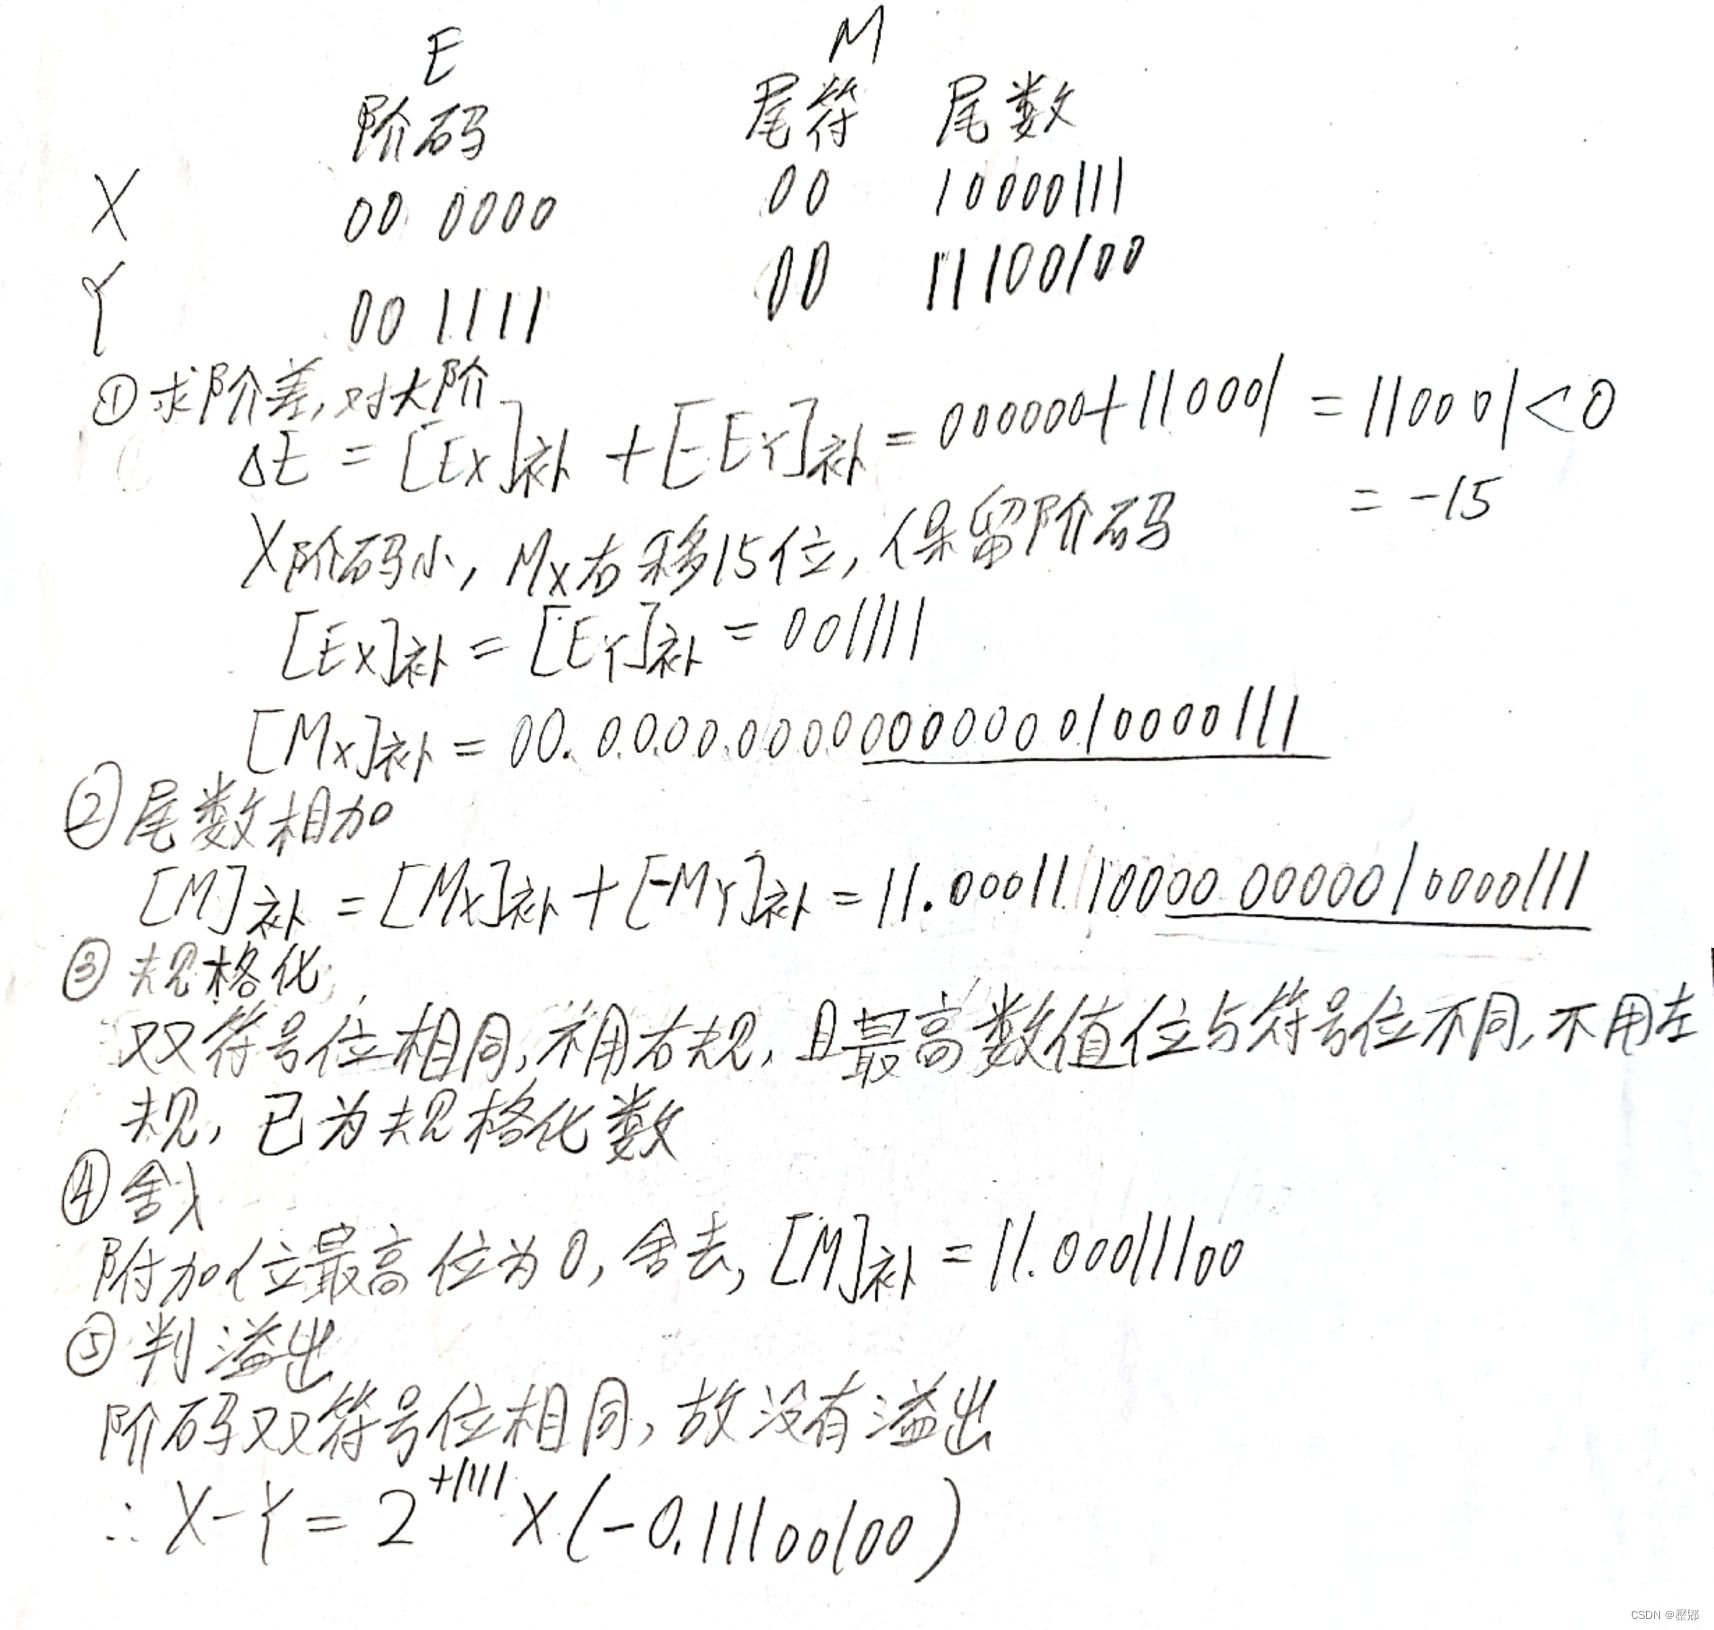 E M
阶码 尾符 尾数
X 00 0000 00 10000111
Y 00 1111 00 11100100
①求阶差,对大阶
ΔE = [Ex]补 + [EY]补 = 000000+110001 = 110001<0
= -15
X阶码小, Mx右移15位, 保留阶码
[Ex]补 = [EY]补 = 001111
[Mx]补 = 00. 0.0.0.0.0.000000000010000111
②尾数相加
[M]补 = [Mx]补 + [-MY]补 = 11.0001111000000000010000111
③规格化
双符号位相同,不用右规, 且最高数值位与符号位不同,不用左
规, 已为规格化数
④舍入
附加位最高位为0, 舍去, [M]补 = 11.00011100
⑤判溢出
阶码双符号位相同, 故没有溢出
∴ X-Y = 2^+1111 × (-0.11100100)
CSDN